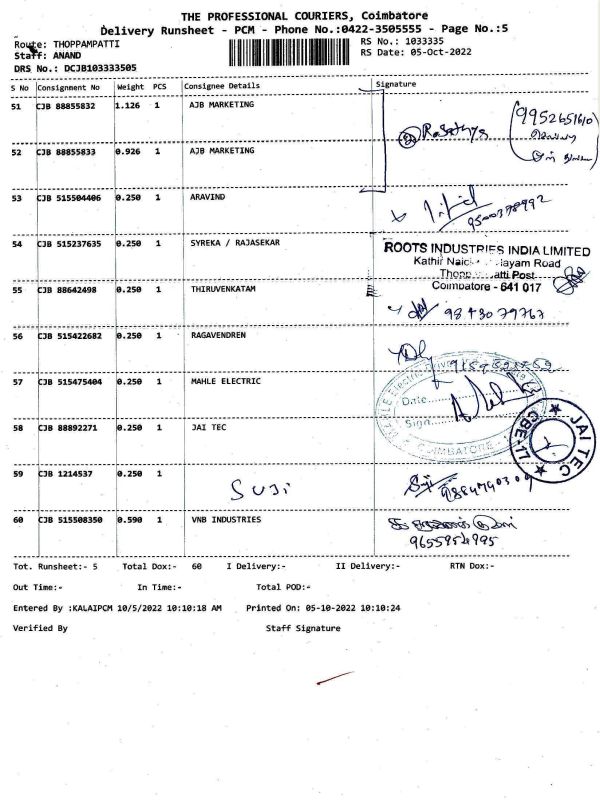 THE PROFESSIONAL COURIERS, Coimbatore
Delivery Runsheet - PCM - Phone No.:0422-3505555 - Page No.:5
Route: THOPPAMPATTI
RS No.: 1033335
Staff: ANAND
RS Date: 05-Oct-2022
DRS No.: DCJB103333505
S No Consignment No Weight PCS Consignee Details Signature
51 CJB 88855832 1.126 1 AJB MARKETING
9952651610
52 CJB 88855833 0.926 1 AJB MARKETING
53 CJB 515504406 0.250 1 ARAVIND
54 CJB 515237635 0.250 1 SYREKA / RAJASEKAR
ROOTS INDUSTRIES INDIA LIMITED
Road
Post
Coimbatore - 641 017
55 CJB 88642498 0.250 1 THIRUVENKATAM
98430 79767
56 CJB 515422682 0.250 1 RAGAVENDREN
57 CJB 515475404 0.250 1 MAHLE ELECTRIC
Date
Sign
COIMBATORE
58 CJB 88892271 0.250 1 JAI TEC
JAI TEC
CBE-17
59 CJB 1214537 0.250 1
SUJI
60 CJB 515508350 0.590 1 VNB INDUSTRIES
Tot. Runsheet:- 5 Total Dox:- 60 I Delivery:- II Delivery:- RTN Dox:-
Out Time:- In Time:- Total POD:-
Entered By :KALAIPCM 10/5/2022 10:10:18 AM Printed On: 05-10-2022 10:10:24
Verified By Staff Signature